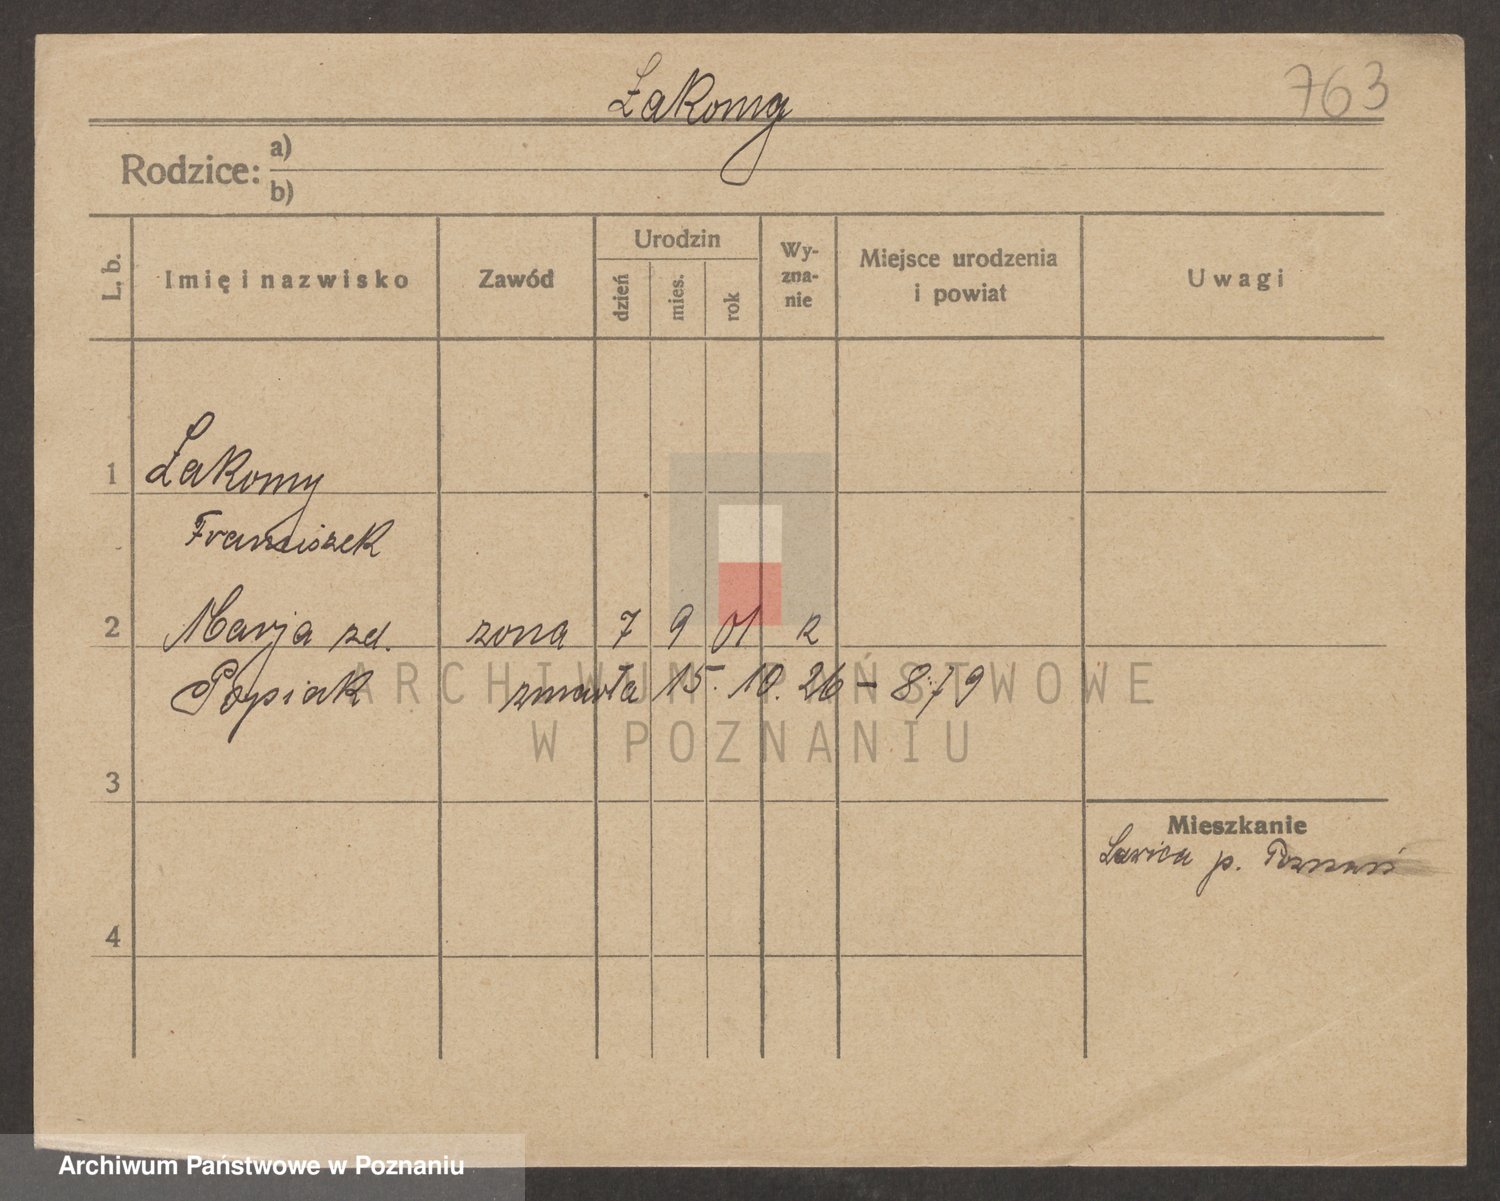 Łakomy
763
Rodzice:
a)
b)
L. b.
Imię i nazwisko
Zawód
Urodzin
dzień
mies.
rok
Wy-
zna-
nie
Miejsce urodzenia
i powiat
Uwagi
1
Łakomy
Franciszek
2
Marja zd. żona 7 9 01 k
Popiak zmarła 15. 10. 26 – 879
ARCHIWUM PAŃSTWOWE
W POZNANIU
3
Mieszkanie
Ławica p. Poznań
4
Archiwum Państwowe w Poznaniu